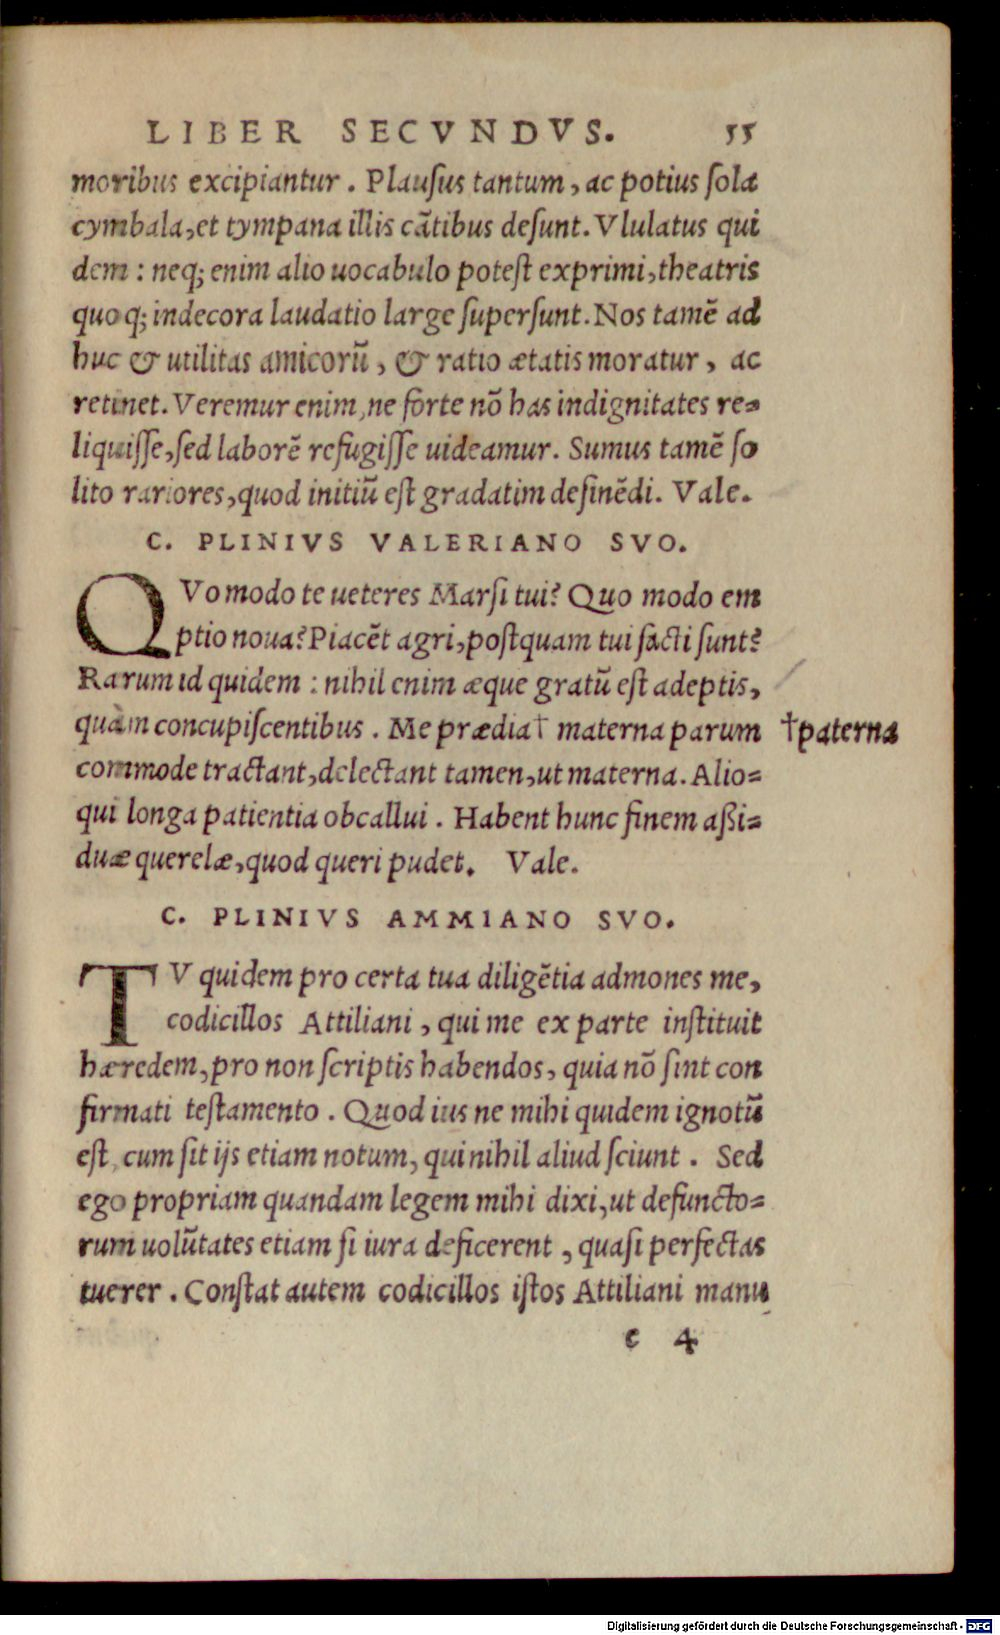 LIBER SECVNDVS. 55
moribus excipiantur. Plauſus tantum, ac potius ſola
cymbala, et tympana illis cãtibus deſunt. Vlulatus qui
dem: neq; enim alio uocabulo poteſt exprimi, theatris
quoq; indecora laudatio large ſuperſunt. Nos tamẽ ad
huc & utilitas amicorũ, & ratio ætatis moratur, ac
retinet. Veremur enim, ne forte nõ has indignitates re=
liquiſſe, ſed laborẽ refugiſſe uideamur. Sumus tamẽ ſo
lito rariores, quod initiũ eſt gradatim deſinẽdi. Vale.
C. PLINIVS VALERIANO SVO.
QVomodo te ueteres Marſi tui? Quo modo em
ptio noua? Placẽt agri, poſtquam tui facti ſunt?
Rarum id quidem: nihil enim æque gratũ eſt adeptis,
quàm concupiſcentibus. Me prædia† materna parum †paterna
commode tractant, delectant tamen, ut materna. Alio=
qui longa patientia obcallui. Habent hunc finem aßi=
duæ querelæ, quod queri pudet. Vale.
C. PLINIVS AMMIANO SVO.
TV quidem pro certa tua diligẽtia admones me,
codicillos Attiliani, qui me ex parte inſtituit
hæredem, pro non ſcriptis habendos, quia nõ ſint con
firmati teſtamento. Quod ius ne mihi quidem ignotũ
eſt, cum ſit ijs etiam notum, qui nihil aliud ſciunt. Sed
ego propriam quandam legem mihi dixi, ut defuncto=
rum uolũtates etiam ſi iura deficerent, quaſi perfectas
tuerer. Conſtat autem codicillos iſtos Attiliani manu
c 4
Digitalisierung gefördert durch die Deutsche Forschungsgemeinschaft - DFG